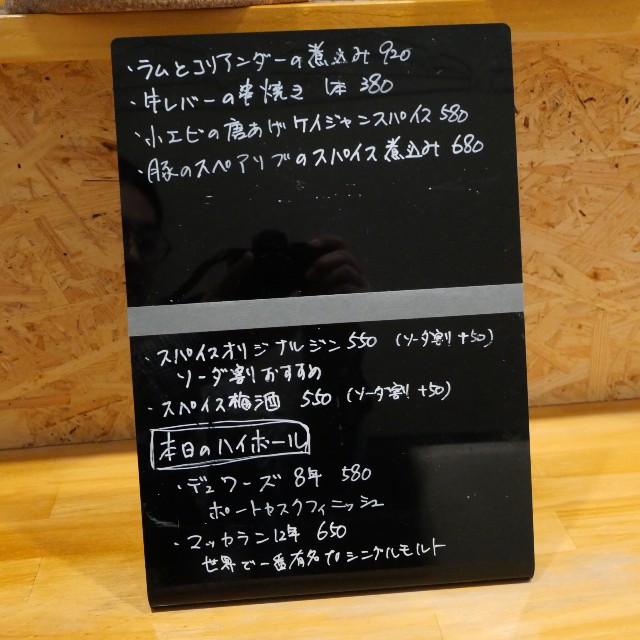 ・ラムとコリアンダーの煮込み 920
・牛レバーの串焼き 1本 380
・小エビの唐あげケイジャンスパイス 580
・豚のスペアリブのスパイス煮込み 680
・スパイスオリジナルジン 550 (ソーダ割 +50)
ソーダ割おすすめ
・スパイス梅酒 550 (ソーダ割 +50)
本日のハイボール
・デュワーズ 8年 580
ポートカスクフィニッシュ
・マッカラン12年 650
世界で一番有名なシングルモルト